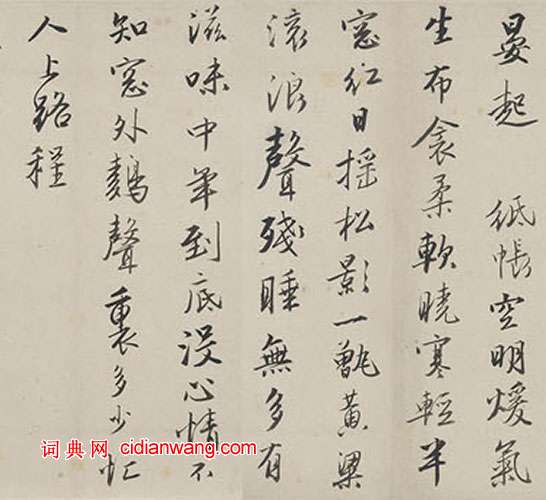 晏起　紙帳空明煖氣
生布衾柔軟曉寒輕半
窓紅日揺松影一甑黃粱
滾浪聲殘睡無多有
滋味中年到底沒心情不
知窓外鷄聲裏多少忙
人上路程
词典网 cidianwang.com